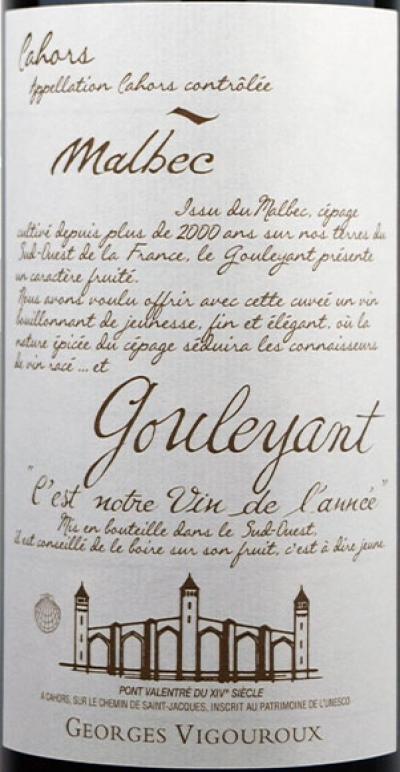 Cahors
Appellation Cahors contrôlée
Malbec
Issu du Malbec, cépage
cultivé depuis plus de 2000 ans sur nos terres du
Sud-Ouest de la France, le Gouleyant présente
un caractère fruité.
Nous avons voulu offrir avec cette cuveé un vin
bouillonnant de jeunesse, fin et élégant, où la
nature épicée du cépage séduira les connaisseurs
de vin racé ... et
Gouleyant
"C'est notre Vin de l'année"
Mis en bouteille dans le Sud-Ouest,
il est conseillé de le boire sur son fruit, c'est à dire jeune.
PONT VALENTRÉ DU XIVe SIÈCLE
A CAHORS, SUR LE CHEMIN DE SAINT-JACQUES, INSCRIT AU PATRIMOINE DE L'UNESCO
GEORGES VIGOUROUX